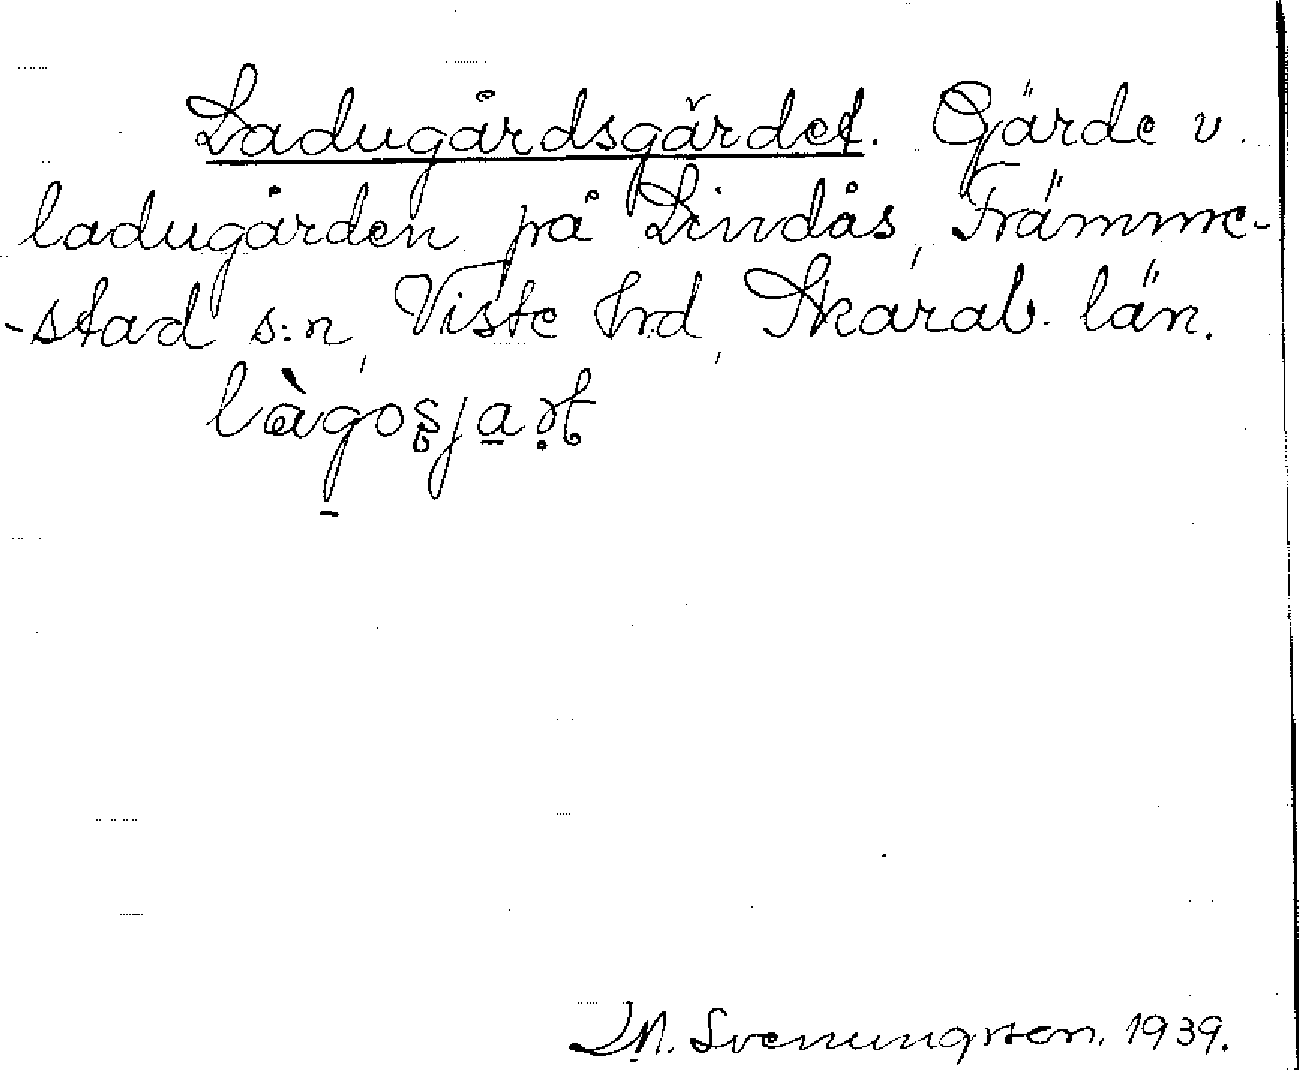 Ladugårdsgärdet. Gärde v.
ladugården på Lindås, Främme-
-stad s:n, Viste hrd, Skarab. län.
Svenungsson. 1939.